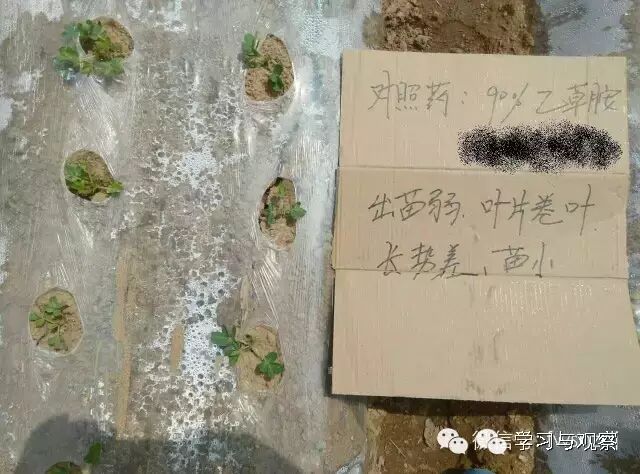 对照药：90% 乙草胺
出苗弱、叶片卷叶
长势差、苗小
微信学习与观察